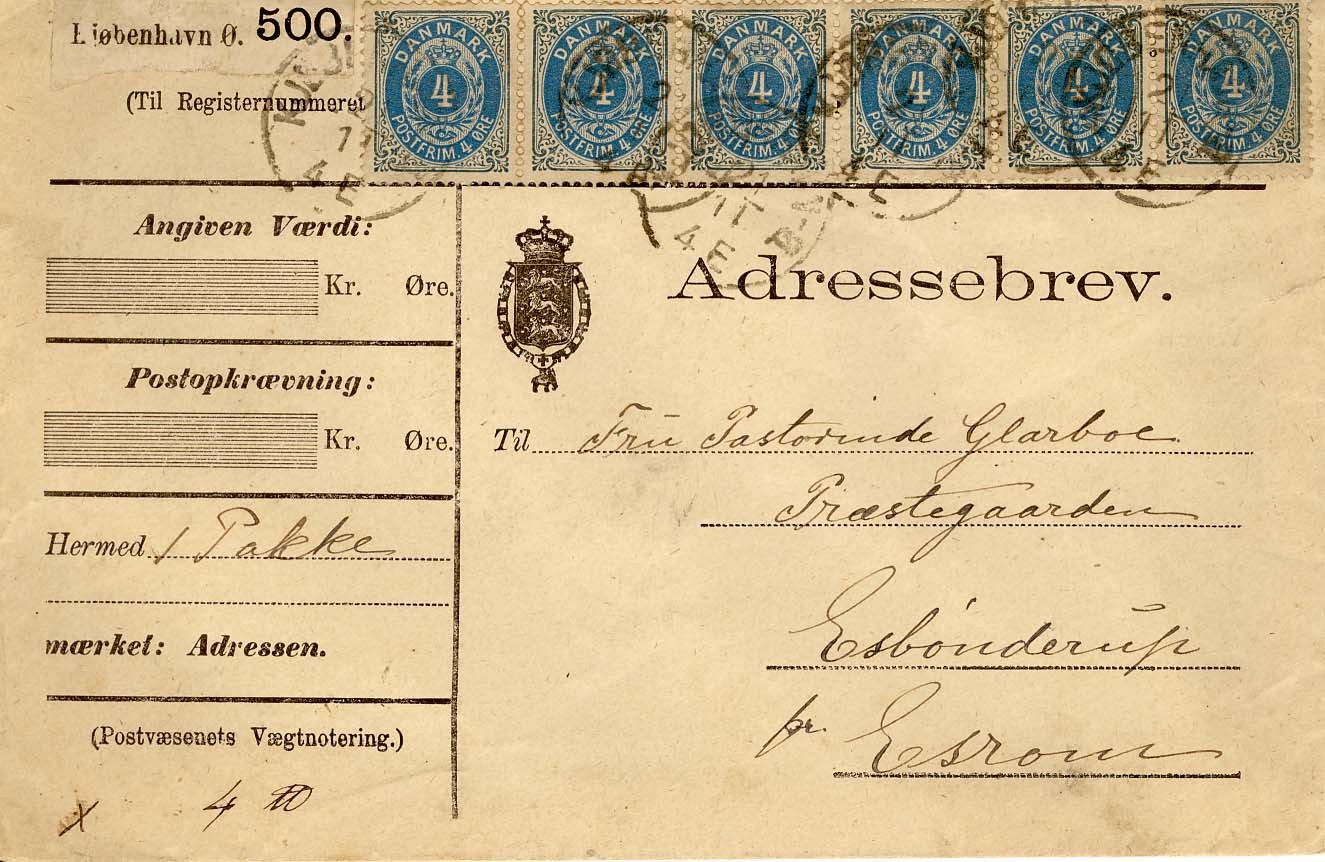 Kjøbenhavn Ø. 500.
(Til Registernummeret
DANMARK 4 POSTFRIM. 4 ØRE
DANMARK 4 POSTFRIM. 4 ØRE
DANMARK 4 POSTFRIM. 4 ØRE
DANMARK 4 POSTFRIM. 4 ØRE
DANMARK 4 POSTFRIM. 4 ØRE
DANMARK 4 POSTFRIM. 4 ØRE
4 E
Angiven Værdi:
Kr. Øre.
Postopkrævning:
Kr. Øre.
Hermed 1 Pakke
mærket: Adressen.
(Postvæsenets Vægtnotering.)
x 4 ℔
Adressebrev.
Til Fru Pastorinde Glarboe
Præstegaarden
Esbønderup
pr. Esrom